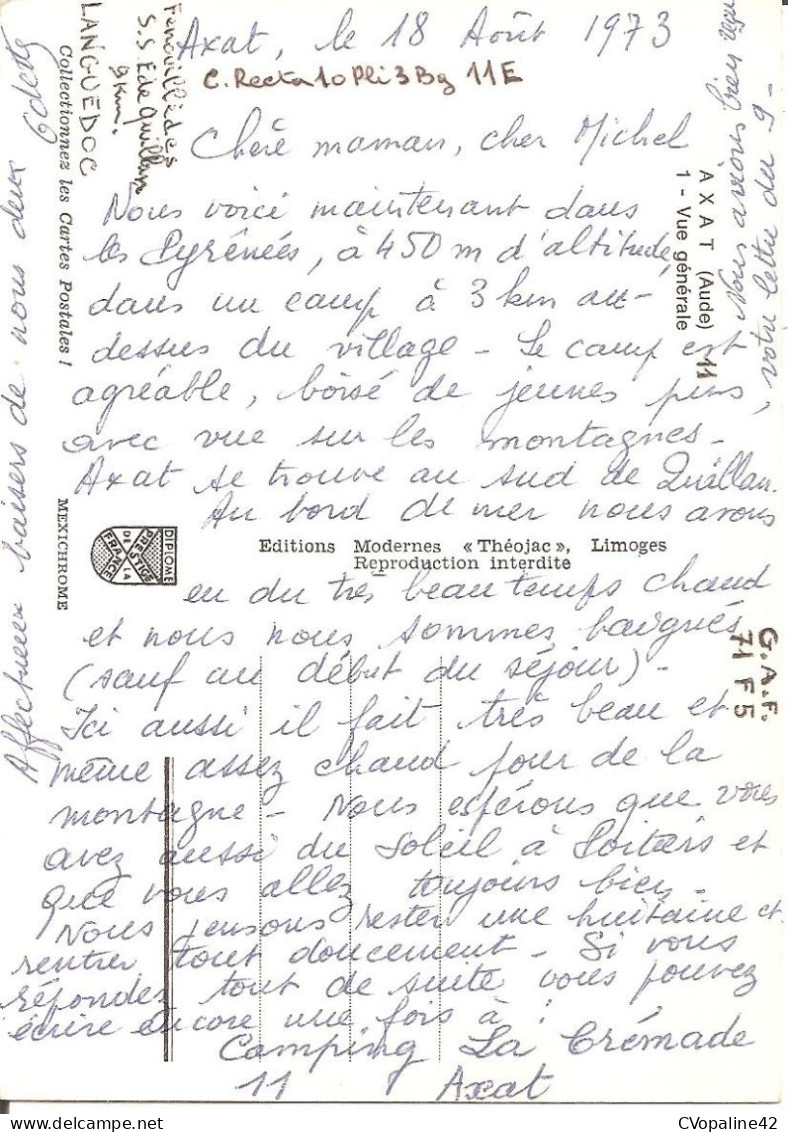 Axat, le 18 Août 1973
C. Recta 10 Pli 3 Bg 11E
Chère maman, cher Michel
Nous voici maintenant dans
les Pyrénées, à 450 m d'altitude,
dans un camp à 3 km au-
dessus du village - Le camp est
agréable, boisé de jeunes pins,
avec vue sur les montagnes -
Axat se trouve au sud de Quillan.
Au bord de mer nous avons
eu du très beau temps chaud
et nous nous sommes baignés
(sauf au début du séjour) -
Ici aussi il fait très beau et
même assez chaud pour de la
montagne - Nous espérons que vous
avez aussi du soleil à Poitiers et
que vous allez toujours bien.
Nous pensons rester une huitaine et
rentrer tout doucement - Si vous
répondez tout de suite vous pouvez
écrire encore une fois à :
Camping La Crémade
11 Axat
Affectueux baisers de nous deux
Odette
Nous avions bien reçu
votre lettre du 9 -
Fenouillèdes
S.S.E de Quillan
9 km.
LANGUEDOC
Collectionnez les Cartes Postales !
MEXICHROME
DIPLOME
PRESTIGE
DE LA
FRANCE
Editions Modernes « Théojac », Limoges
Reproduction interdite
AXAT (Aude) 11
1 - Vue générale
G.A.F.
71 F 5
CVopaline42